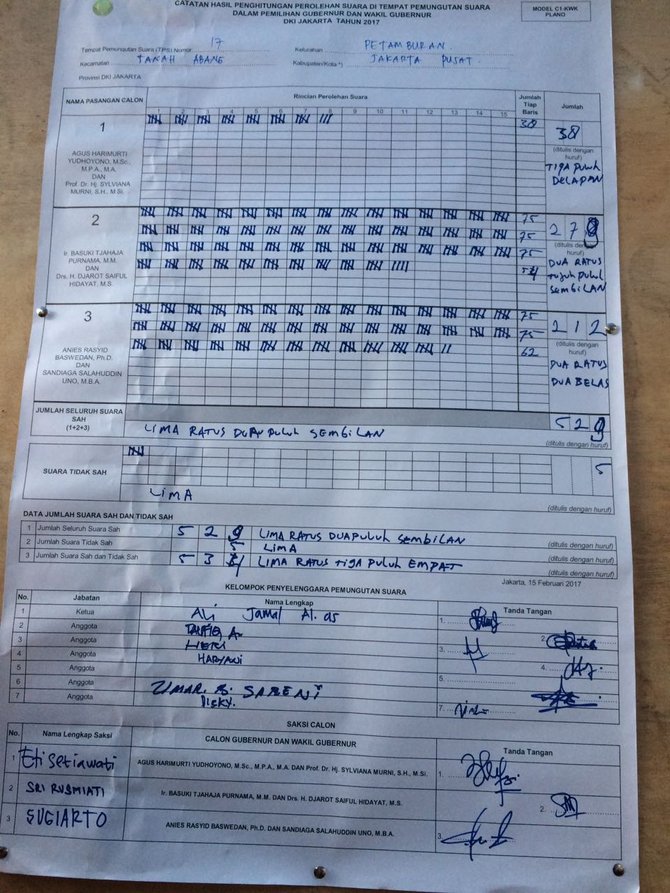 CATATAN HASIL PENGHITUNGAN PEROLEHAN SUARA DI TEMPAT PEMUNGUTAN SUARA
DALAM PEMILIHAN GUBERNUR DAN WAKIL GUBERNUR
DKI JAKARTA TAHUN 2017
MODEL C1-KWK
PLANO
Tempat Pemungutan Suara (TPS) Nomor : 17 Kelurahan : PETAMBURAN
Kecamatan : TANAH ABANG Kabupaten/Kota *) : JAKARTA PUSAT
Provinsi DKI JAKARTA
NAMA PASANGAN CALON Rincian Perolehan Suara Jumlah Tiap Baris Jumlah
1 2 3 4 5 6 7 8 9 10 11 12 13 14 15
1
AGUS HARIMURTI
YUDHOYONO, M.Sc.,
M.P.A., M.A.
DAN
Prof. Dr. Hj. SYLVIANA
MURNI, S.H., M.Si.
38
38
(ditulis dengan huruf)
TIGA PULUH
DELAPAN
2
Ir. BASUKI TJAHAJA
PURNAMA, M.M.
DAN
Drs. H. DJAROT SAIFUL
HIDAYAT, M.S.
75
75
75
54
279
(ditulis dengan huruf)
DUA RATUS
tujuh puluh
SEMBILAN
3
ANIES RASYID
BASWEDAN, Ph.D.
DAN
SANDIAGA SALAHUDDIN
UNO, M.B.A.
75
75
62
212
(ditulis dengan huruf)
DUA RATUS
DUA BELAS
JUMLAH SELURUH SUARA
SAH
(1+2+3)
LIMA RATUS DUA PULUH SEMBILAN
529
(ditulis dengan huruf)
SUARA TIDAK SAH
5
LIMA
(ditulis dengan huruf)
DATA JUMLAH SUARA SAH DAN TIDAK SAH
1 Jumlah Seluruh Suara Sah 5 2 9 LIMA RATUS DUAPULUH SEMBILAN (ditulis dengan huruf)
2 Jumlah Suara Tidak Sah 5 LIMA (ditulis dengan huruf)
3 Jumlah Suara Sah dan Tidak Sah 5 3 4 LIMA RATUS TIGA PULUH EMPAT (ditulis dengan huruf)
Jakarta, 15 Februari 2017
KELOMPOK PENYELENGGARA PEMUNGUTAN SUARA
No. Jabatan Nama Lengkap Tanda Tangan
1 Ketua Ali Jamal Al. as 1.
2 Anggota 2.
3 Anggota 3.
4 Anggota HARYANI 4.
5 Anggota 5.
6 Anggota UMAR. B. SABENI
7 Anggota Dicky. 7.
SAKSI CALON
No. Nama Lengkap Saksi CALON GUBERNUR DAN WAKIL GUBERNUR Tanda Tangan
1 Eti setiawati AGUS HARIMURTI YUDHOYONO, M.Sc., M.P.A., M.A. DAN Prof. Dr. Hj. SYLVIANA MURNI, S.H., M.Si. 1.
2 SRI RUSMIATI Ir. BASUKI TJAHAJA PURNAMA, M.M. DAN Drs. H. DJAROT SAIFUL HIDAYAT, M.S. 2.
3 SUGIARTO ANIES RASYID BASWEDAN, Ph.D. DAN SANDIAGA SALAHUDDIN UNO, M.B.A. 3.